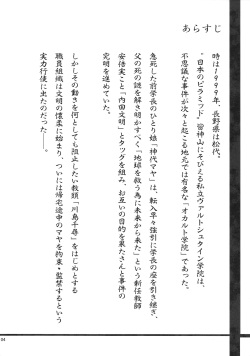 あらすじ
時は1999年、長野県は松代。
"日本のピラミッド"皆神山にそびえる私立ヴァルトシュタイン学院は、
不思議な事件が次々と起こる地元では有名な「オカルト学院」であった。
急死した前学長のひとり娘「神代マヤ」は、転入早々強引に学長の座を引き継ぎ、
父の死の謎を解き明かすべく、「地球を救う為に未来から来た」という新任教師
安倍実こと「内田文明」とタッグを組み、お互いの目的を果たさんと事件の
究明を進めていた。
しかしその動きを何としても阻止したい教頭「川島千尋」をはじめとする
職員組織は文明の懐柔に始まり、ついには帰宅途中のマヤを拘束・監禁するという
実力行使に出たのだった――。
04